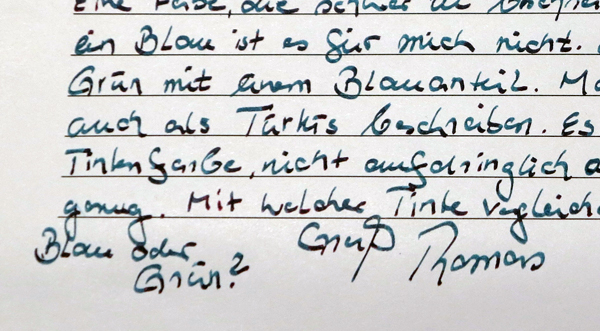 eine Farbe, die schwer zu
ein Blau ist es für mich nicht.
Grün mit einem Blauanteil.
auch als Türkis beschreiben. Es
Tintenfarbe, nicht aufdringlich
genug. Mit welcher Tinte
Blau oder
Grün?
Gruß Thomas